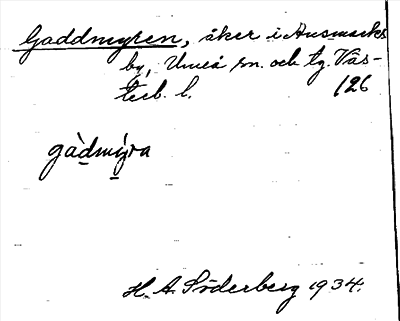 Gaddmyren, åker i Ausmarks
by, Umeå sn. och tg. Väs-
terb. l. 126
gàd̲mýra
H. A. Söderberg 1934.